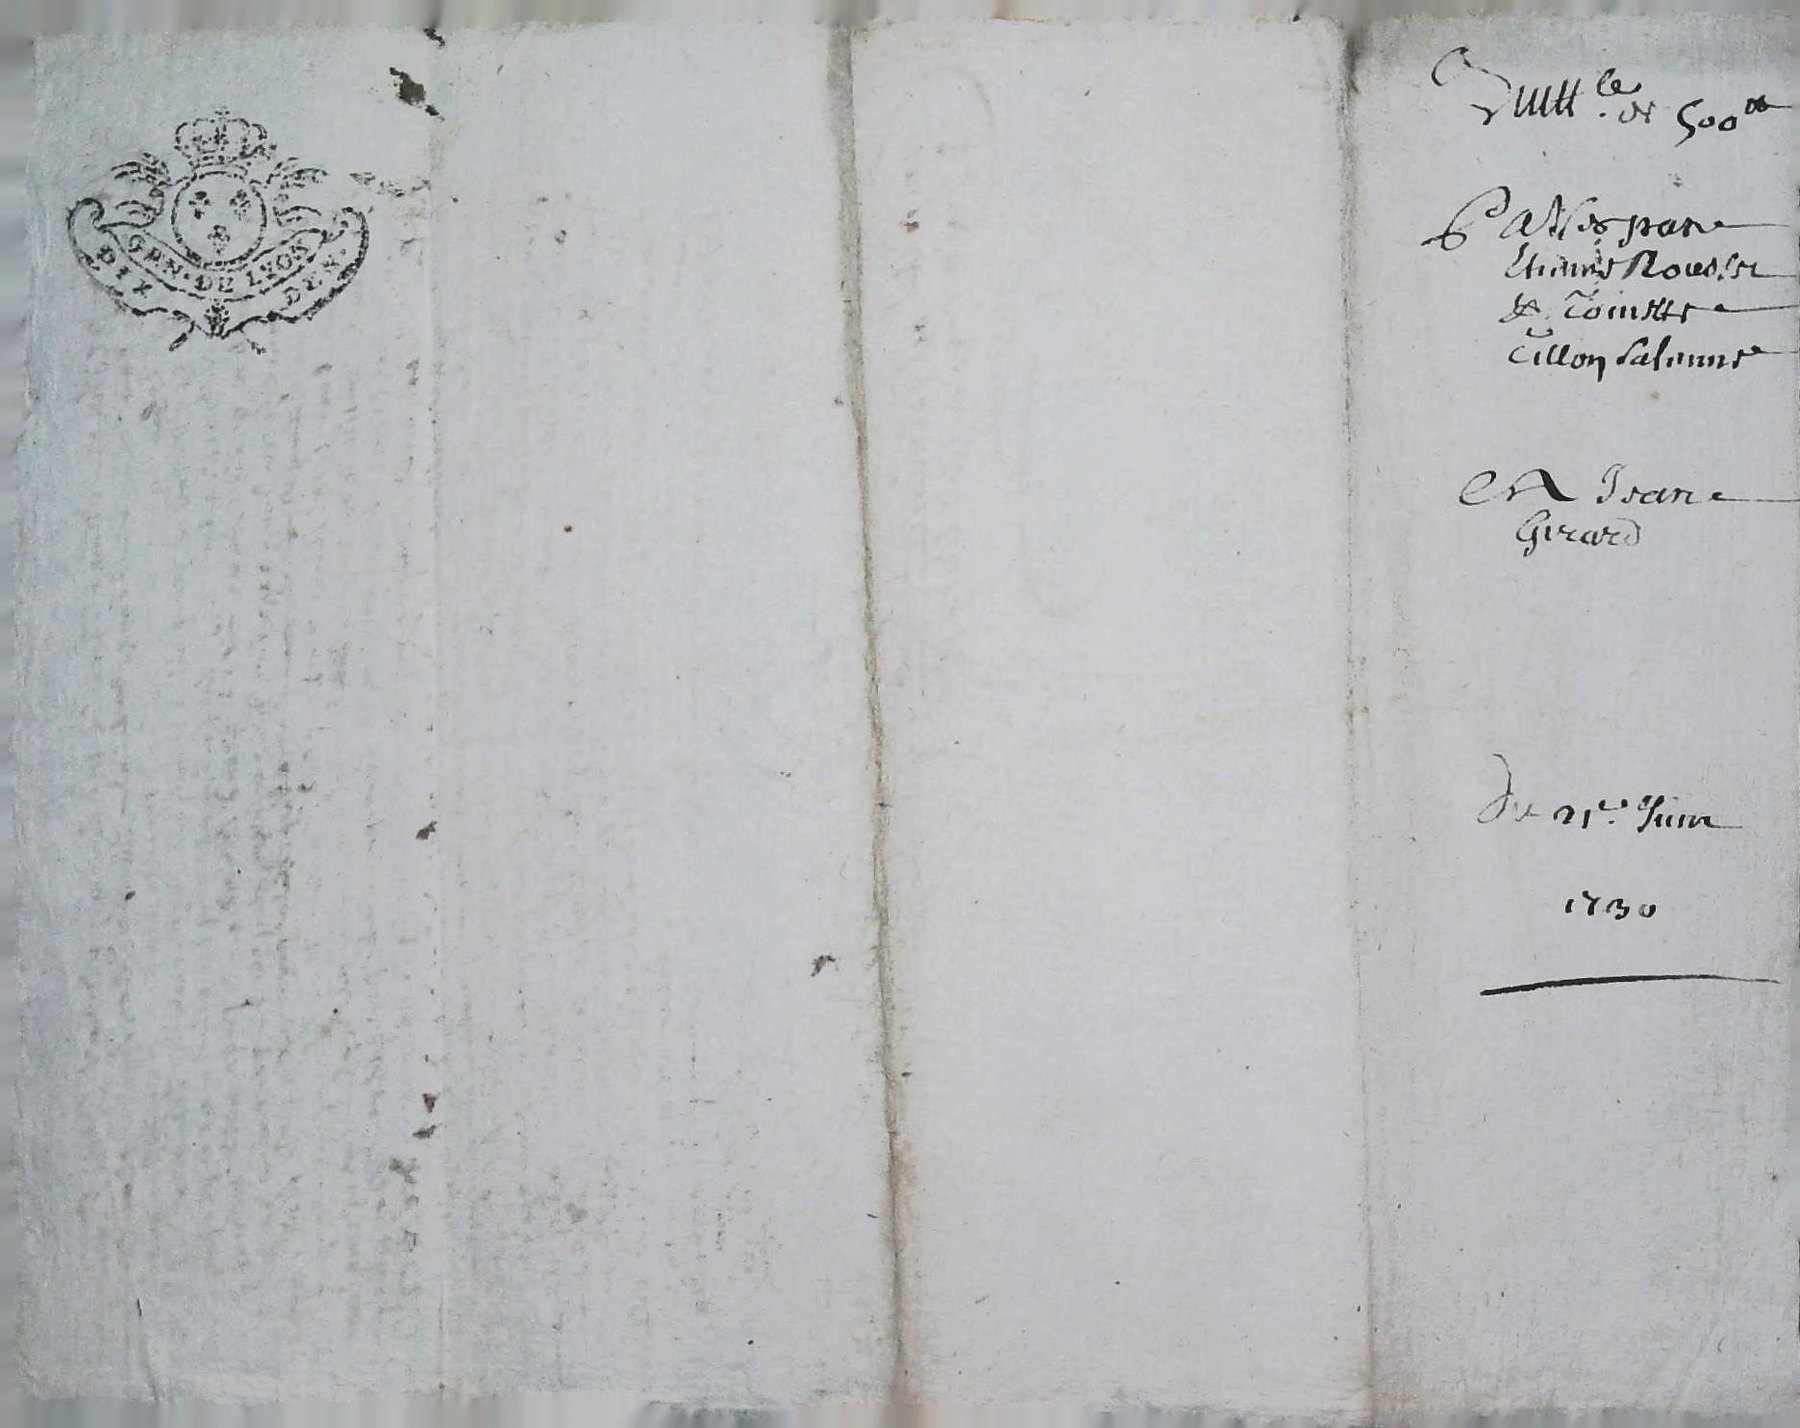 GEN · DE LYON
DIX DEN.
Quitt.le de 500 tt
Passes par
Etienne Rousset
& Toinette
Tillon sa femme
Et A Jean
Girard
De 21e. Juin
1730